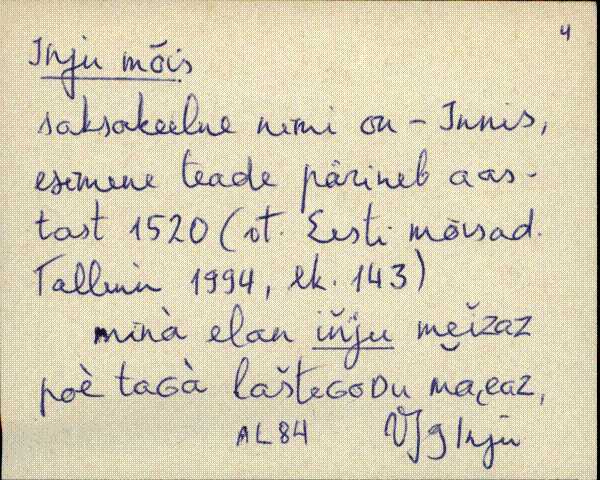 4
Inju mõis
saksakeelne nimi on - Innis,
esimene teade pärineb aas-
tast 1520 (vt. Eesti mõisad.
Tallinn 1994, lk. 143)
minà elan iňju
poè tagà
AL84 VJg Inju